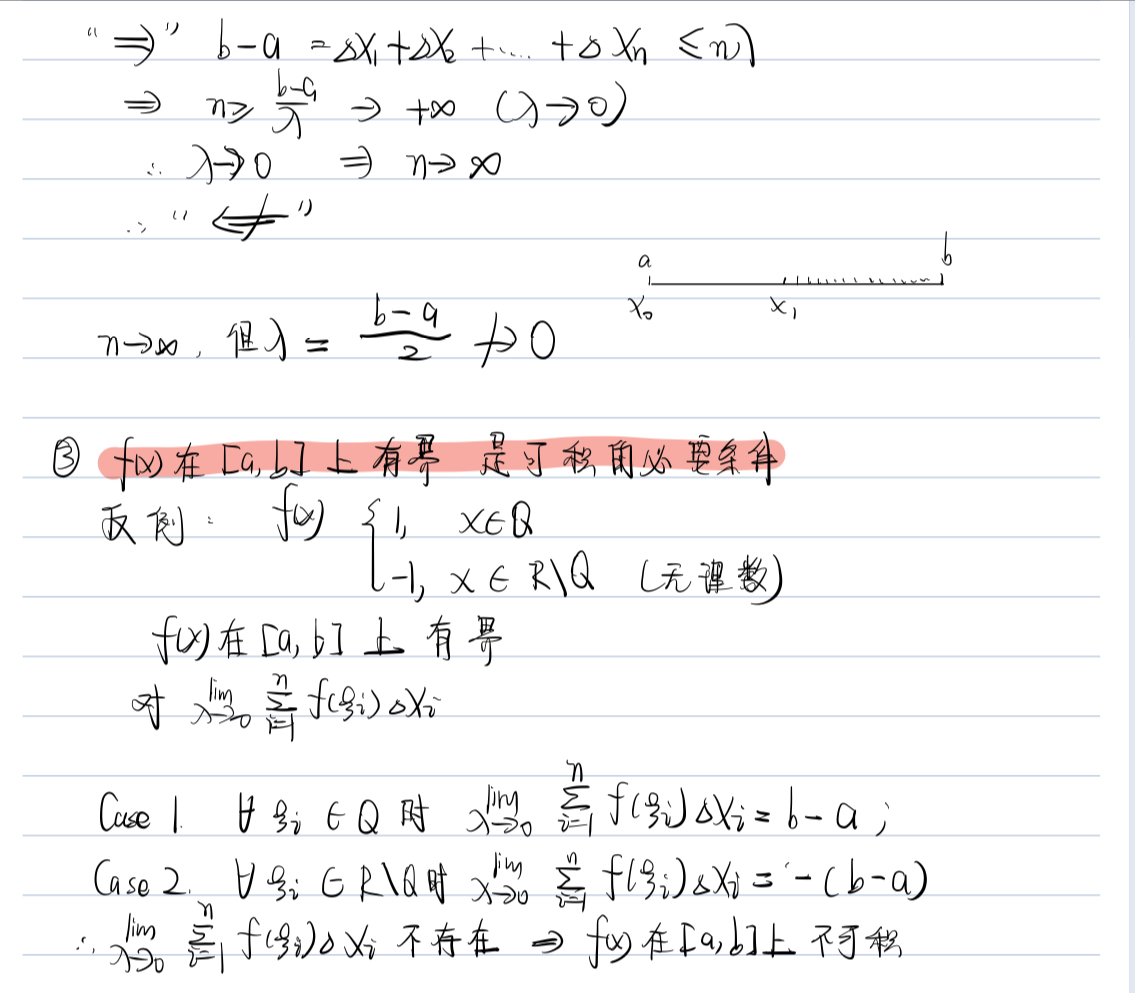 “⇒” b-a = ΔX₁+ΔX₂+....+ΔXn ≤ nλ
⇒ n ≥ (b-a)/λ → +∞ (λ→0)
∴ λ→0 ⇒ n→∞
∴ “⇍”
a b
x₀ x₁
n→∞, 但λ = (b-a)/2 ↛ 0
③ f(x)在[a,b]上有界 是可积的必要条件
反例: f(x) { 1, x∈Q
-1, x∈R\Q (无理数)
f(x)在[a,b]上有界
对 lim λ→0 Σ i=1 n f(ξi)ΔXi
Case 1. ∀ ξi ∈ Q 时 lim λ→0 Σ i=1 n f(ξi)ΔXi = b-a;
Case 2. ∀ ξi ∈ R\Q时 lim λ→0 Σ i=1 n f(ξi)ΔXi = -(b-a)
∴ lim λ→0 Σ i=1 n f(ξi)ΔXi 不存在 ⇒ f(x)在[a,b]上不可积